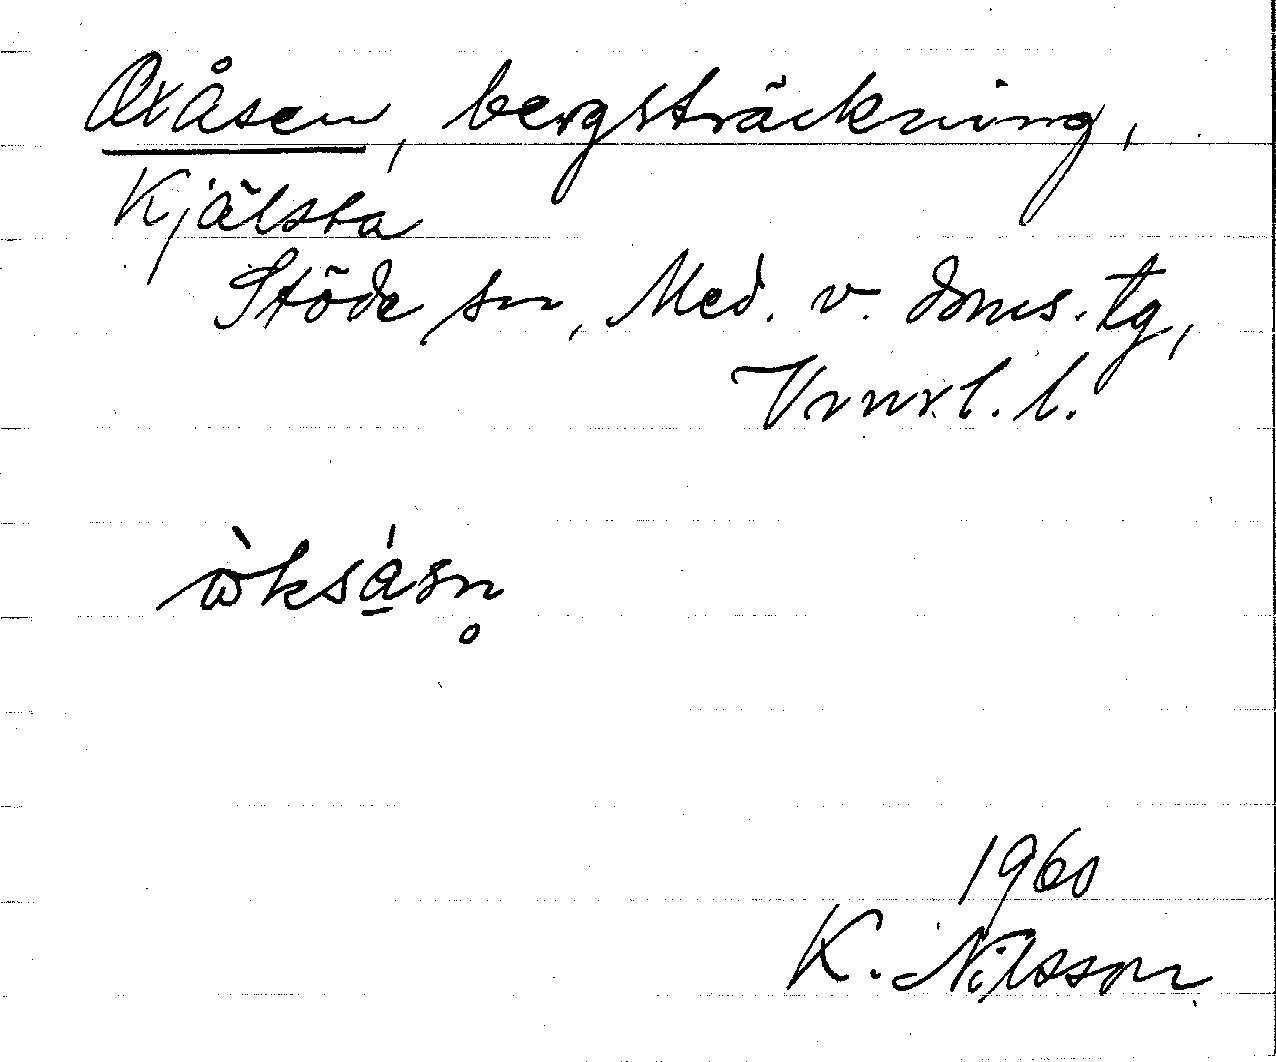 Oxåsen, bergsträckning,
Kjälsta
Stöde sn, Med. v. doms. tg,
Vrnrl. l.
òksásn̥
1960
K. Nilsson